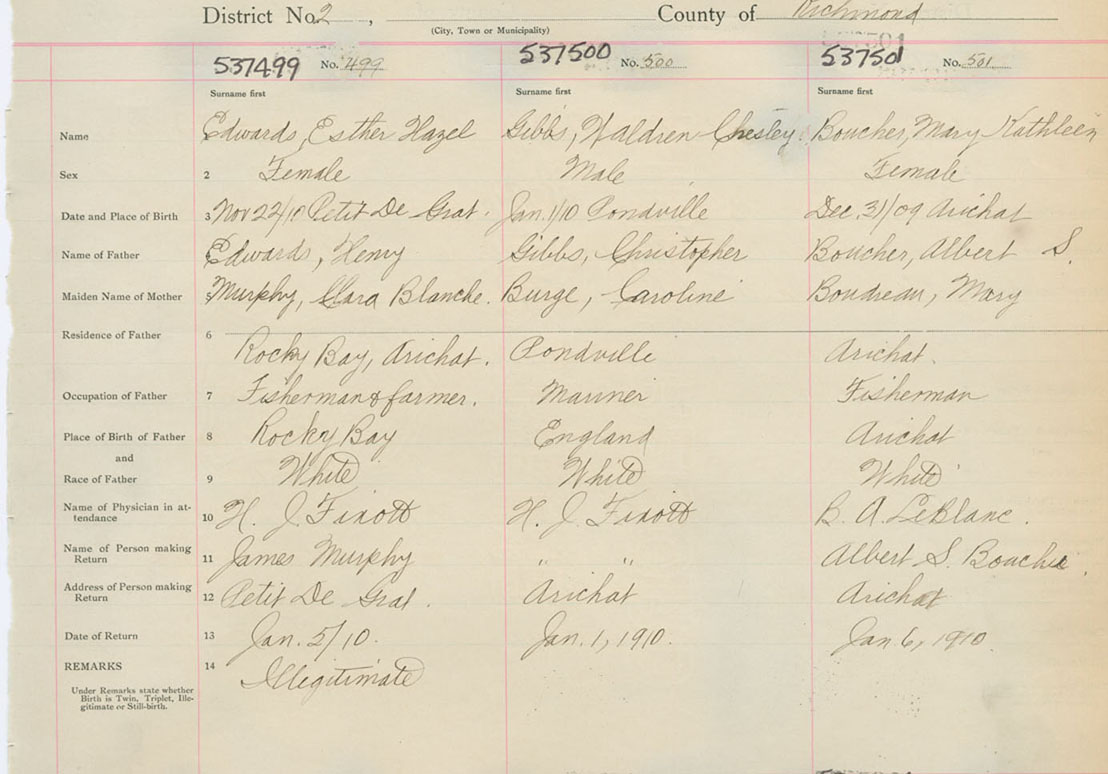 District No. 2, County of Richmond
(City, Town or Municipality)
537499 No. 499 537500 No. 500 537501 No. 501
Surname first Surname first Surname first
Name Edwards, Esther Hazel Gibbs, Waldren Chesley. Boucher, Mary Kathleen
Sex 2 Female Male Female
Date and Place of Birth 3 Nov 22/10 Petit De Grat. Jan. 1/10 Pondville Dec. 31/09 Arichat
Name of Father Edwards, Henry Gibbs, Christopher Boucher, Albert S.
Maiden Name of Mother Murphy, Clara Blanche. Burge, Caroline Boudreau, Mary
Residence of Father 6
Rocky Bay, Arichat. Pondville Arichat.
Occupation of Father 7 Fisherman & farmer. Mariner Fisherman
Place of Birth of Father 8 Rocky Bay England Arichat
and
Race of Father 9 White White White
Name of Physician in at-
tendance 10 H. J. Fixott H. J. Fixott B. A. LeBlanc.
Name of Person making
Return 11 James Murphy " " Albert S. Boucher.
Address of Person making
Return 12 Petit De Grat. Arichat Arichat
Date of Return 13 Jan. 5/10. Jan. 1, 1910. Jan 6, 1910.
REMARKS 14 Illegitimate
Under Remarks state whether
Birth is Twin, Triplet, Ille-
gitimate or Still-birth.